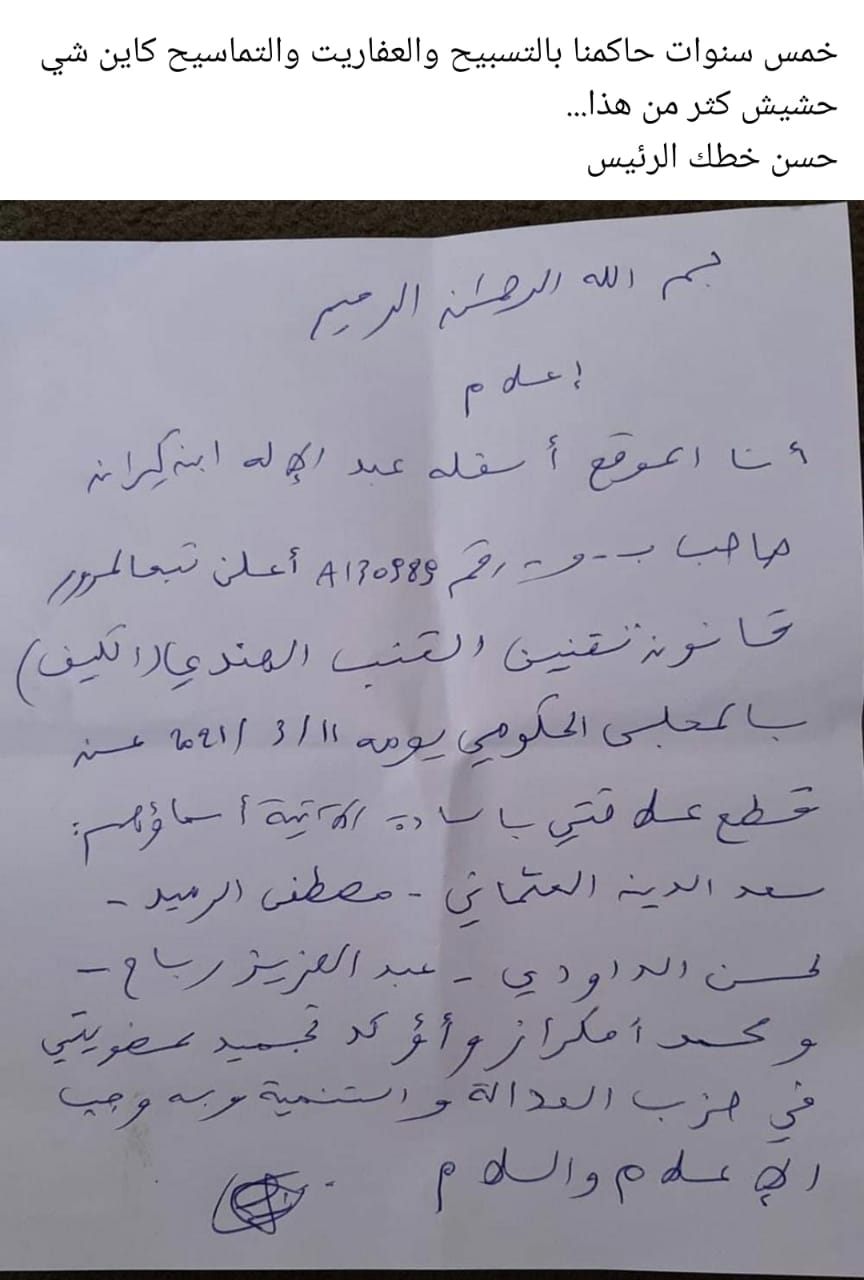 خمس سنوات حاكمنا بالتسبيح والعفاريت والتماسيح كاين شي
حشيش كثر من هذا...
حسن خطك الرئيس
بسم الله الرحمان الرحيم
إعلام
أنا الموقع أسفله عبد الإله ابن كيران
صاحب ب-و- رقم A130989 أعلن تبعا لمرور
قانون تقنين القنب الهندي (الكيف)
بالمجلس الحكومي يومه 11/3/2021 عن
قطع علاقتي بالسادة الآتية أسماؤهم:
سعد الدين العثماني - مصطفى الرميد -
لحسن الداودي - عبد العزيز رباح -
ومحمد أمكراز وأؤكد تجميد عضويتي
في حزب العدالة والتنمية وبه وجب
الإعلام والسلام